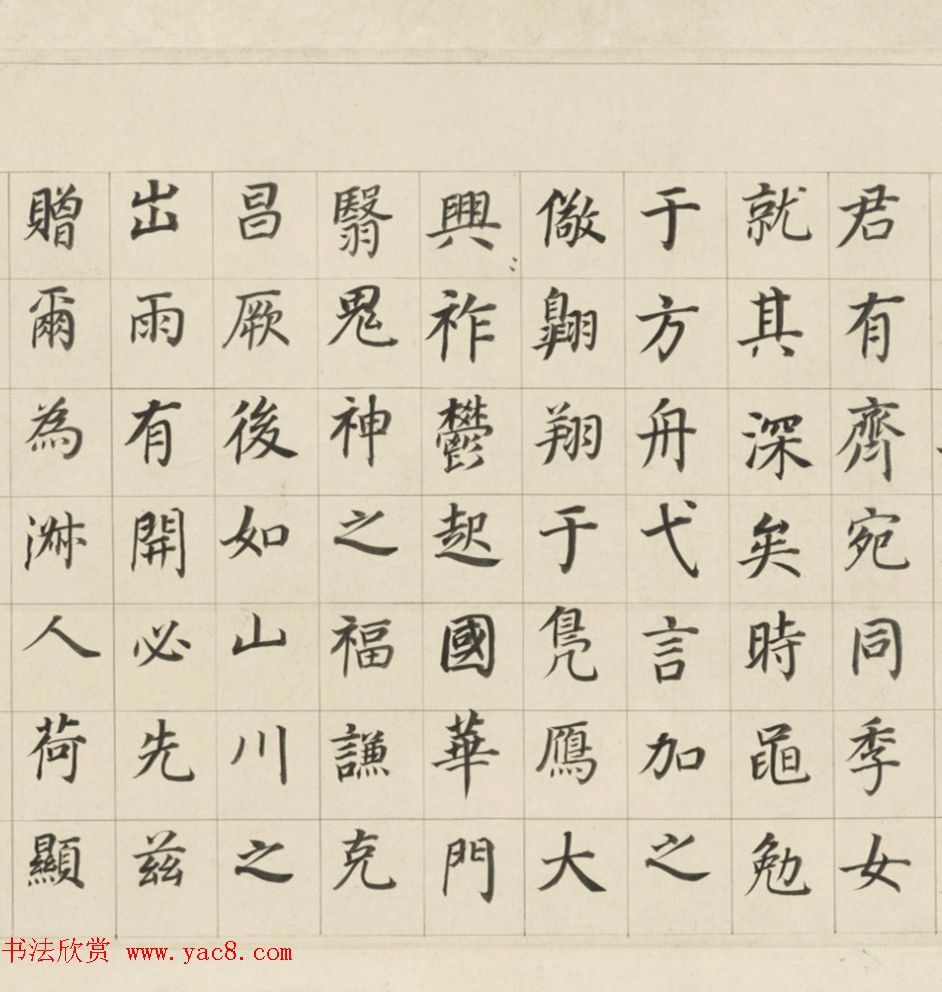 君有齊宛同季女
就其深矣時黽勉
于方舟弋言加之
儆翺翔于鳧鴈大
興祚鬱起國華門
翳鬼神之福謙克
昌厥後如山川之
出雨有開必先兹
贈爾為淋人荷顯
书法欣赏 www.yac8.com